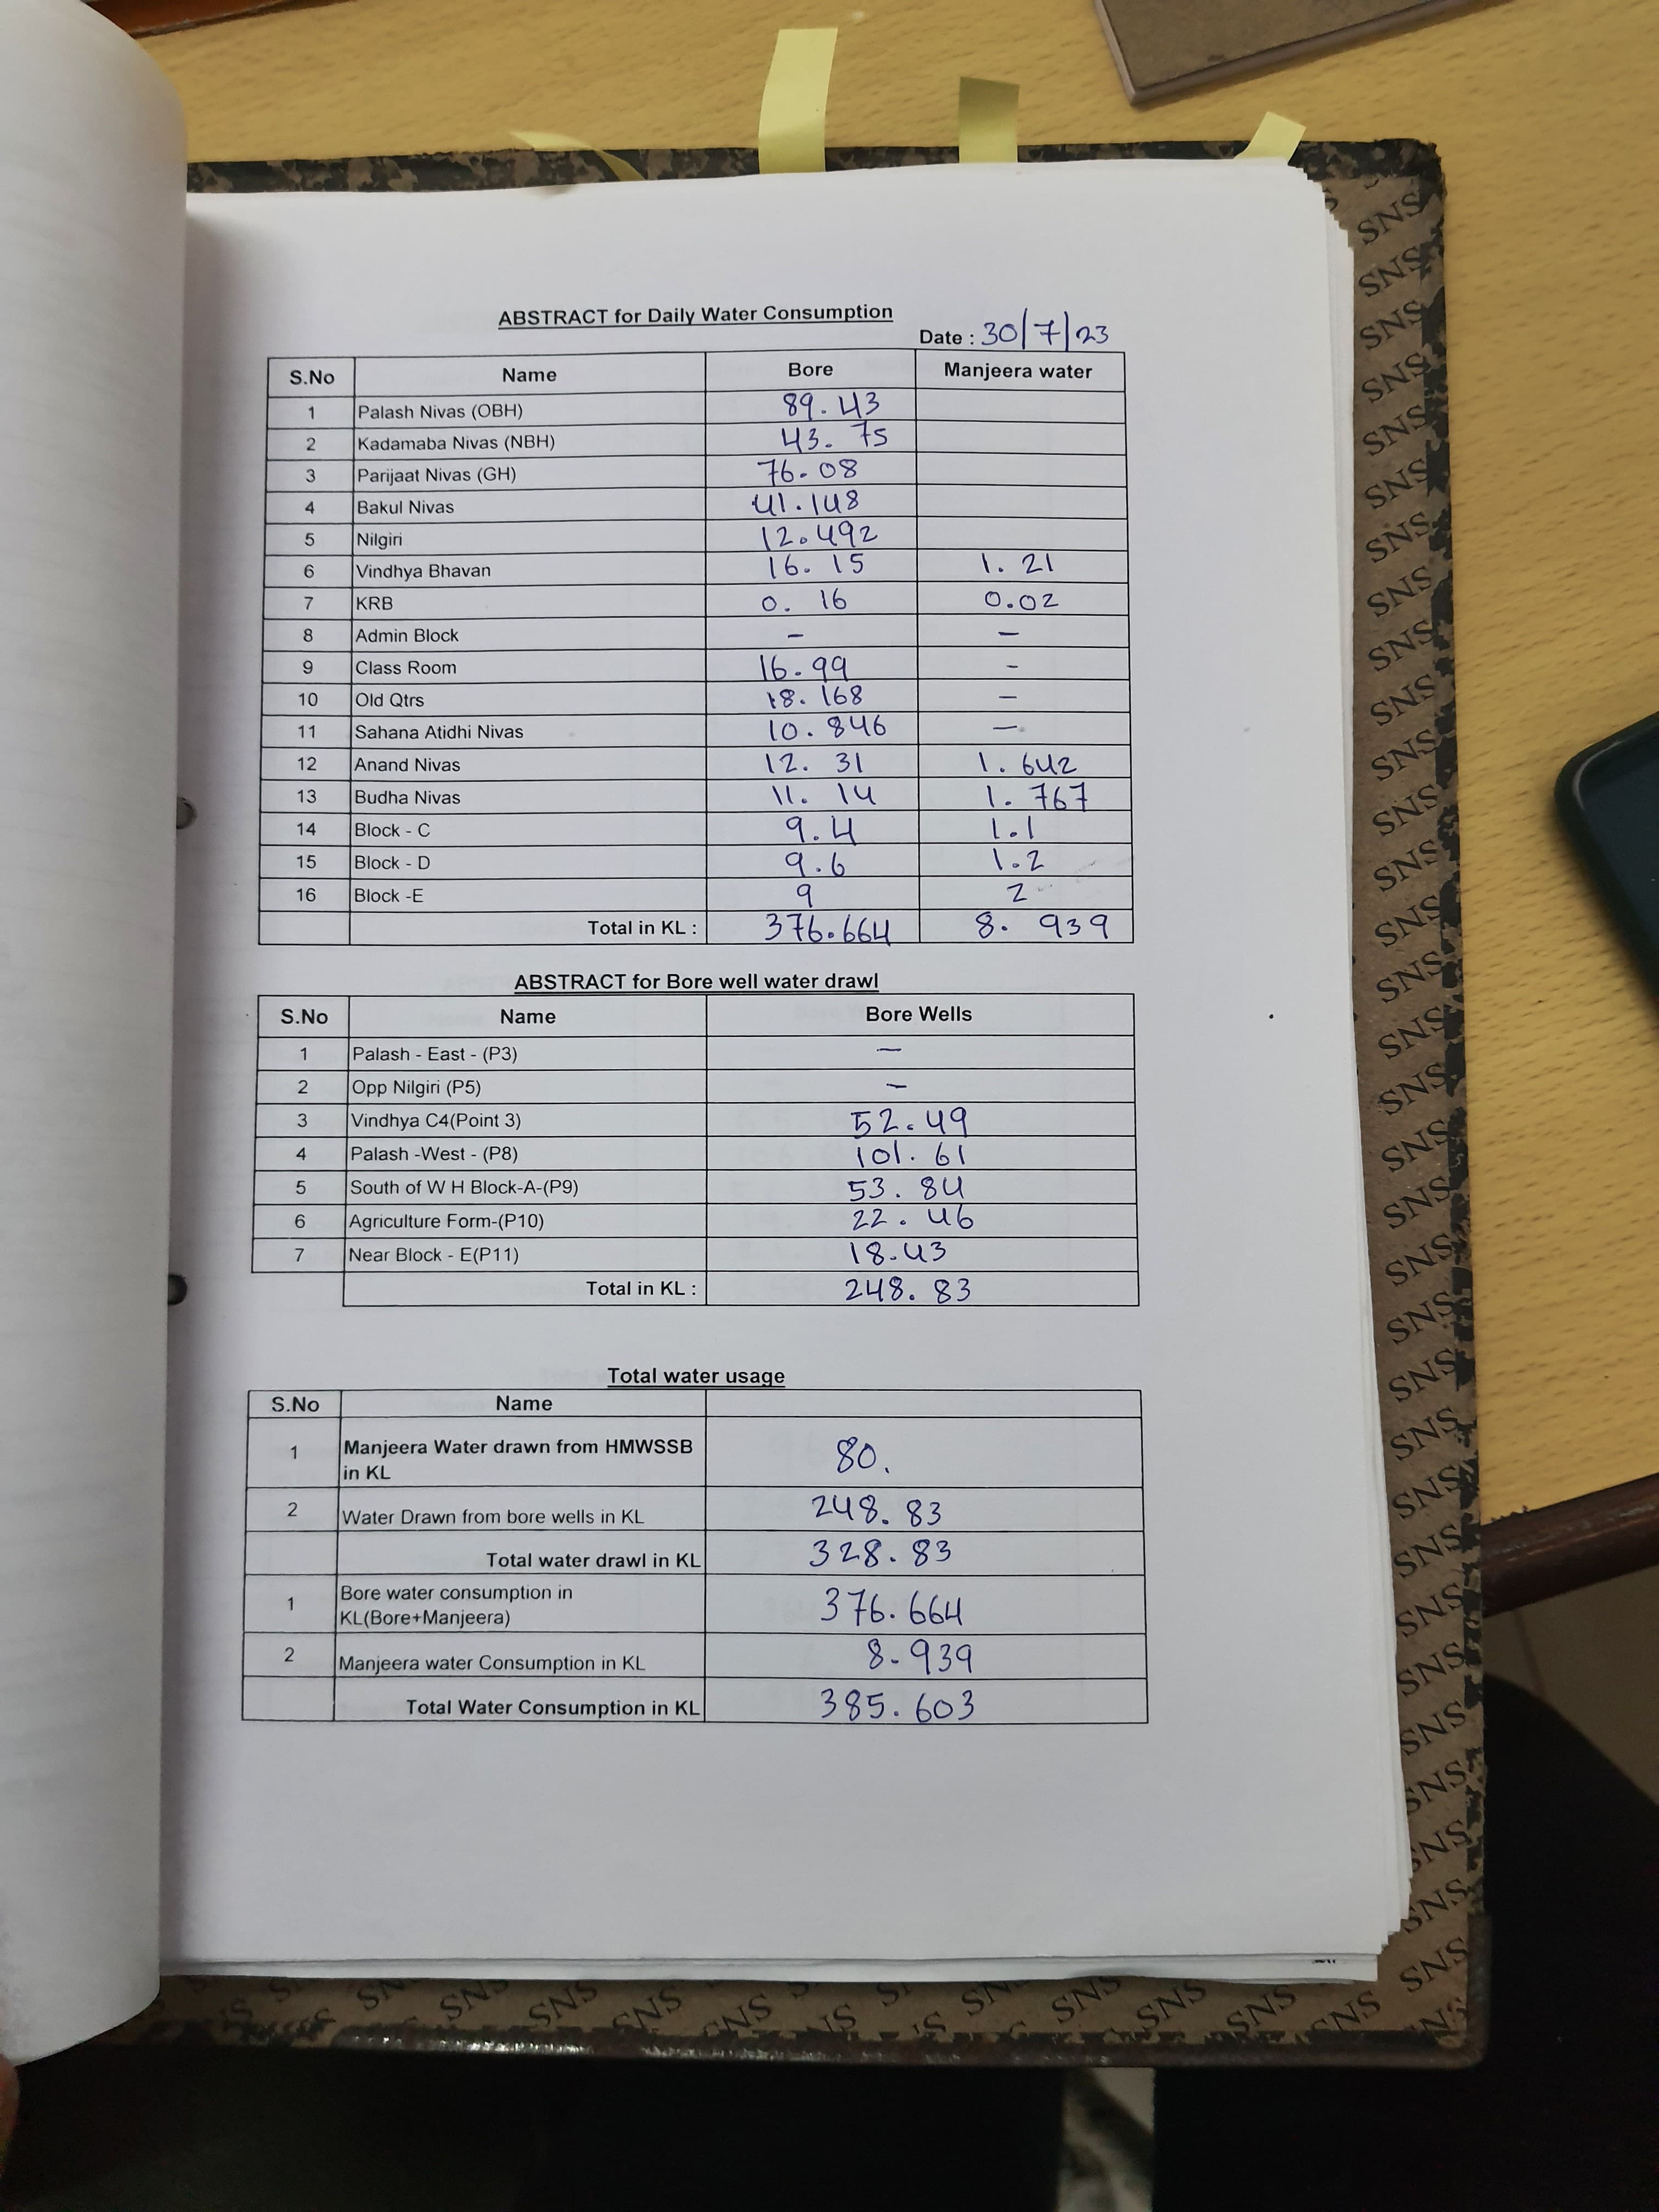 ABSTRACT for Daily Water Consumption
Date : 30/7/23
S.No Name Bore Manjeera water
1 Palash Nivas (OBH) 89.43
2 Kadamaba Nivas (NBH) 43.75
3 Parijaat Nivas (GH) 76.08
4 Bakul Nivas 41.148
5 Nilgiri 12.492
6 Vindhya Bhavan 16.15 1.21
7 KRB 0.16 0.02
8 Admin Block - -
9 Class Room 16.99 -
10 Old Qtrs 18.168 -
11 Sahana Atidhi Nivas 10.846 -
12 Anand Nivas 12.31 1.642
13 Budha Nivas 11.14 1.767
14 Block - C 9.4 1.1
15 Block - D 9.6 1.2
16 Block -E 9 2
Total in KL : 376.664 8.939
ABSTRACT for Bore well water drawl
S.No Name Bore Wells
1 Palash - East - (P3) -
2 Opp Nilgiri (P5) -
3 Vindhya C4(Point 3) 52.49
4 Palash -West - (P8) 101.61
5 South of W H Block-A-(P9) 53.84
6 Agriculture Form-(P10) 22.46
7 Near Block - E(P11) 18.43
Total in KL : 248.83
Total water usage
S.No Name
1 Manjeera Water drawn from HMWSSB
in KL 80.
2 Water Drawn from bore wells in KL 248.83
Total water drawl in KL 328.83
1 Bore water consumption in
KL(Bore+Manjeera) 376.664
2 Manjeera water Consumption in KL 8.939
Total Water Consumption in KL 385.603
SNS